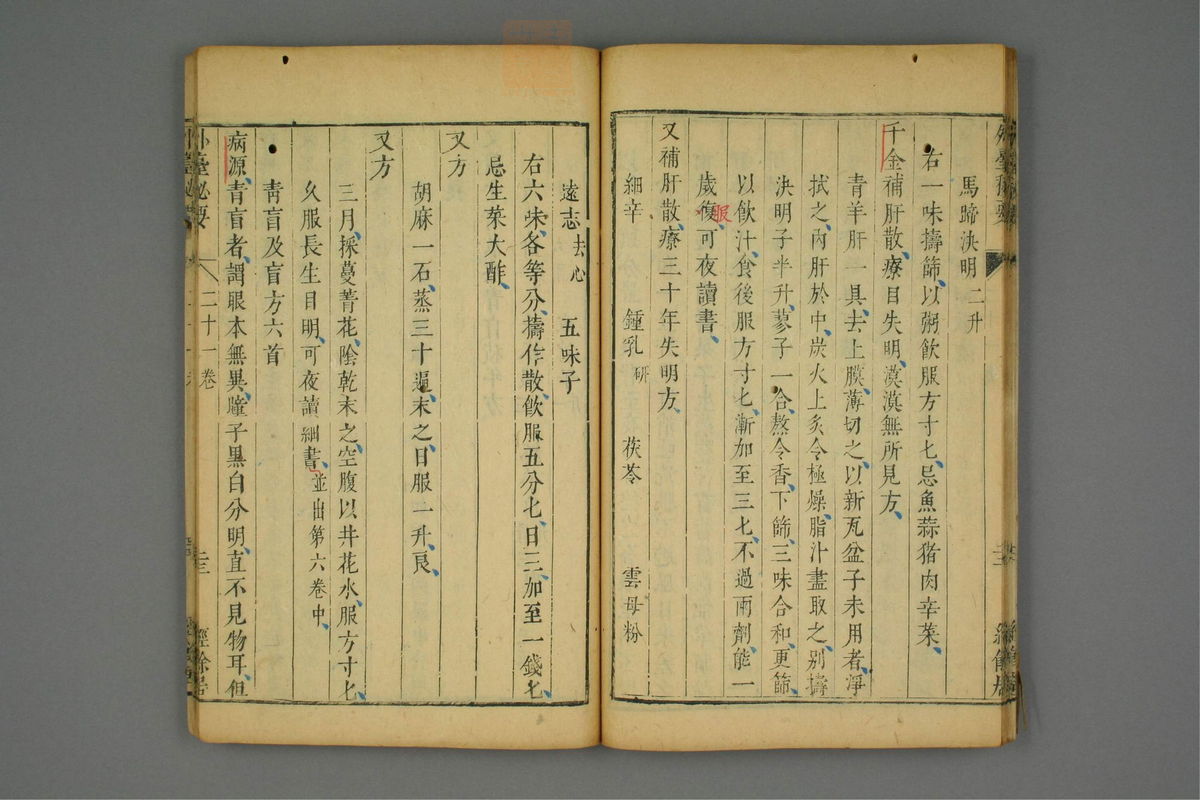 馬蹄決明二升
右一味擣篩以粥飲服方寸匕忌魚蒜猪肉辛菜
千金補肝散療目失明漠漠無所見方
青羊肝一具去上膜薄切之以新瓦盆子未用者淨
拭之內肝於中炭火上炙令極燥脂汁盡取之別擣
決明子半升蓼子一合熬令香下篩三味合和更篩
以飲汁食後服方寸匕漸加至三匕不過兩劑能一
歲復服可夜讀書
又補肝散療三十年失明方
細辛 鍾乳研 茯苓 雲母粉
遠志去心 五味子
右六味各等分擣作散飲服五分匕日三加至一錢匕
忌生菜大酢
又方
胡麻一石蒸三十遍末之日服一升良
又方
三月採蔓菁花陰乾末之空腹以井花水服方寸匕
久服長生目明可夜讀細書並出第六卷中
青盲及盲方六首
病源青盲者謂眼本無異瞳子黑白分明直不見物耳但
外臺秘要 二十一卷 經餘居